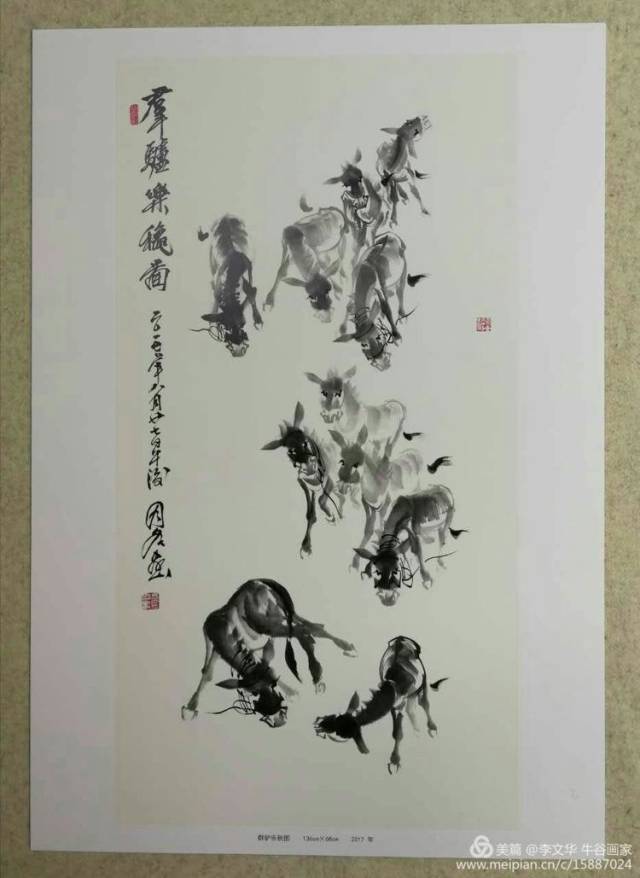 羣驢樂穐啚
二〇一七年八月廿七日午後
群驴乐秋图 136cm×68cm 2017 年
美篇 @李文华 牛谷画家
www.meipian.cn/c/15887024